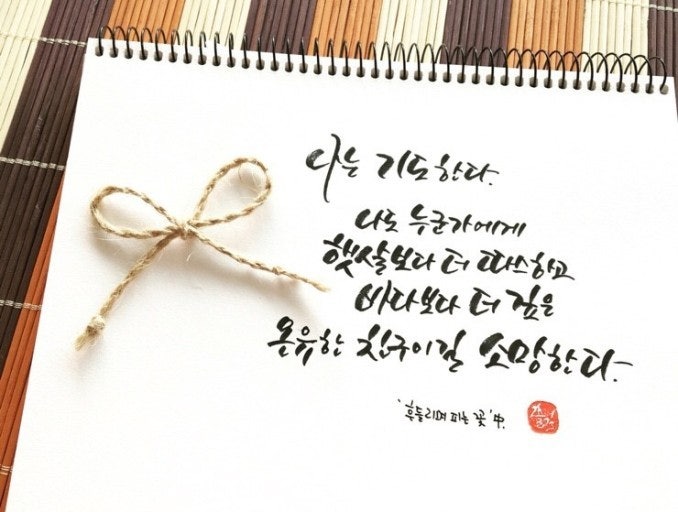 나는 기도한다.
나도 누군가에게
햇살보다 더 따스하고
바다보다 더 깊은
온유한 친구이길 소망한다.
'흔들리며 피는 꽃' 中.